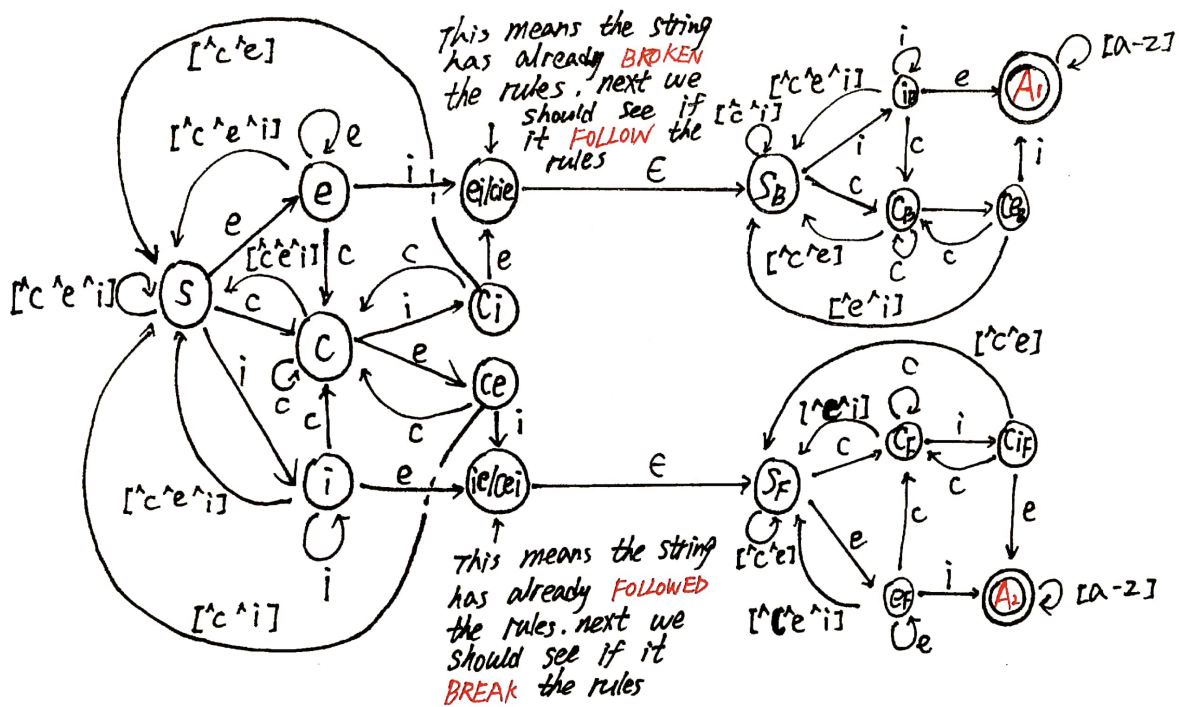 This means the string
has already BROKEN
the rules. next we
should see if
it FOLLOW the
rules
[^c^e]
[^c^e^i]
e
i
ei/cie
ϵ
e
e
[^c^e^i]
c
c
i
e
Ci
[^c^e^i]
S
c
C
c
i
e
ce
c
i
c
i
e
ie/cei
ϵ
[^c^e^i]
i
[^c^i]
This means the string
has already FOLLOWED
the rules. next we
should see if it
BREAK the rules
i
[^c^e^i]
iB
e
A1
[a-z]
[^c^i]
i
c
i
SB
c
CB
ceB
[^c^e]
c
c
[^e^i]
[^c^e]
c
[^e^i]
CF
i
CiF
c
c
SF
[^c^e]
e
c
e
[^c^e^i]
eF
i
A2
[a-z]
e